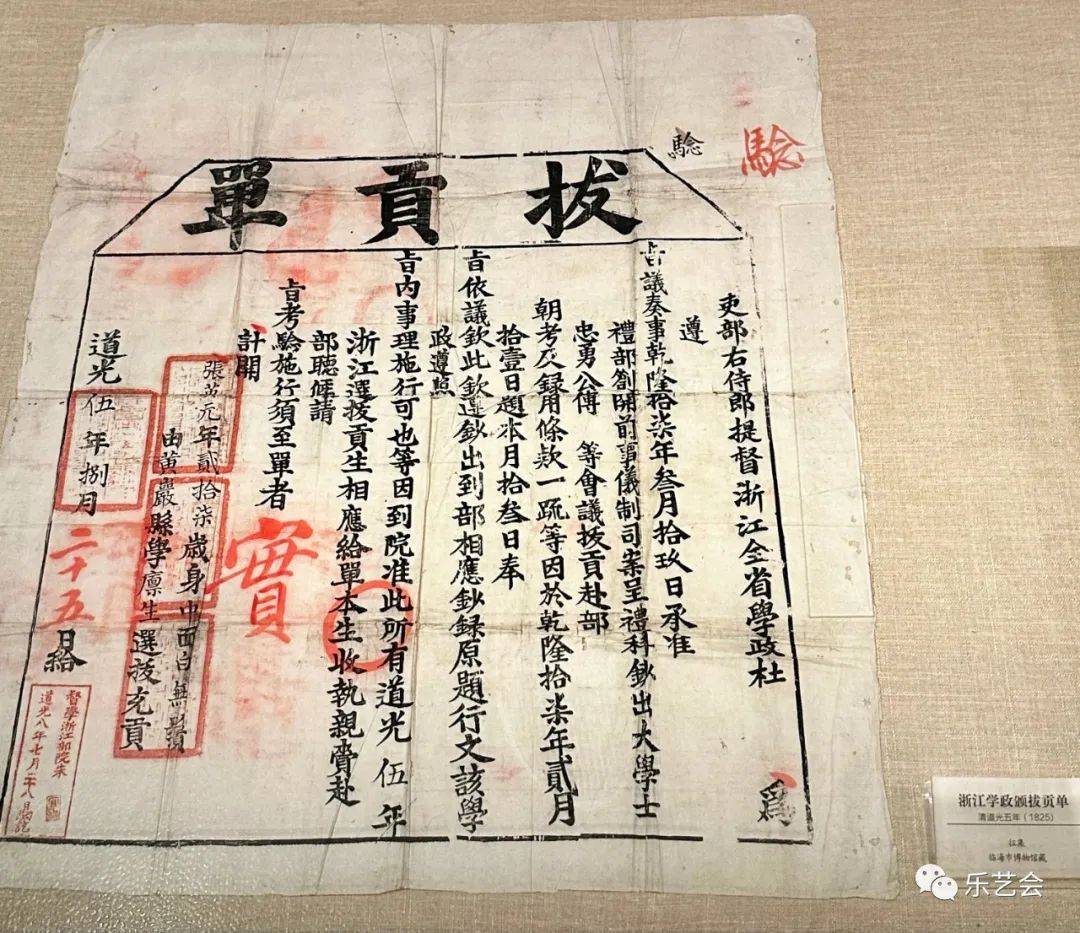 驗
驗
拔貢單
吏部右侍郎提督浙江全省學政杜
為
遵
旨議奏事乾隆拾柒年叁月拾玖日承准
禮部劄開前事儀制司案呈禮科鈔出大學士
忠勇公傅 等會議拔貢赴部
朝考及錄用條款一疏等因於乾隆拾柒年貳月
拾壹日題本月拾叁日奉
旨依議欽此欽遵鈔出到部相應鈔錄原題行文該學
政遵照
旨內事理施行可也等因到院准此所有道光伍年
浙江選拔貢生相應給單本生收執親齎赴
部聽候請
旨考驗施行須至單者
實
計開
張 元年貳拾柒歲身中面白無鬚
由黃巖縣學廩生選拔充貢
道光伍年捌月二十五日給
督學浙江部院朱
道光八年七月二十八日
浙江学政颁拔贡单
清道光五年（1825）
征集
临海市博物馆藏
乐艺会